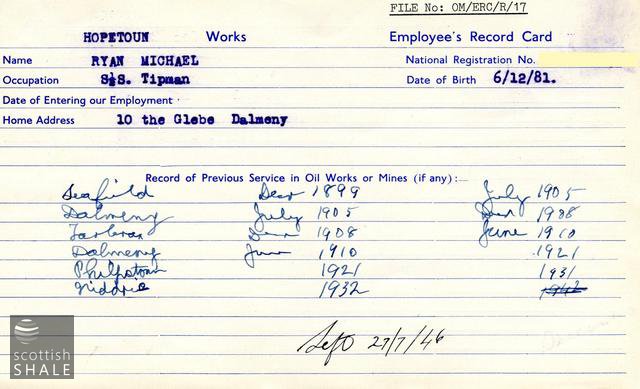 FILE No: OM/ERC/R/17
HOPETOUN Works Employee's Record Card
Name RYAN MICHAEL National Registration No.
Occupation S&S. Tipman Date of Birth 6/12/81.
Date of Entering our Employment
Home Address 10 the Glebe Dalmeny
Record of Previous Service in Oil Works or Mines (if any):—
Seafield Decr 1899 July 1905
Dalmeny July 1905 Decr 1908
Tarbrax Decr 1908 June 1910
Dalmeny June 1910 1921
Philpstoun 1921 1931
Niddrie 1932 1942
Left 27/7/46
scottish
SHALE